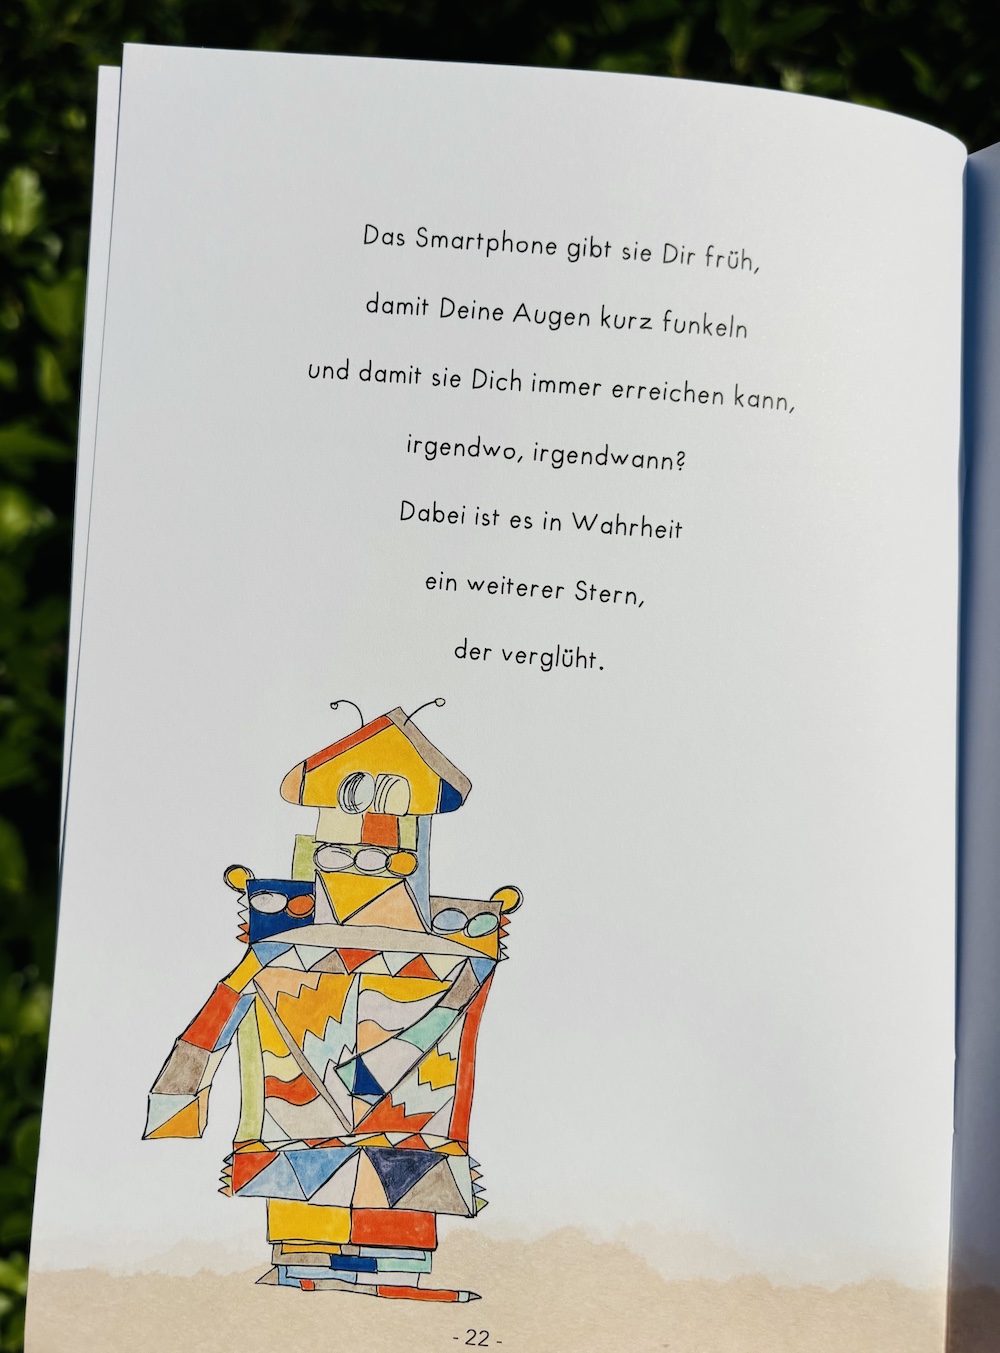 Das Smartphone gibt sie Dir früh,
damit Deine Augen kurz funkeln
und damit sie Dich immer erreichen kann,
irgendwo, irgendwann?
Dabei ist es in Wahrheit
ein weiterer Stern,
der verglüht.
- 22 -